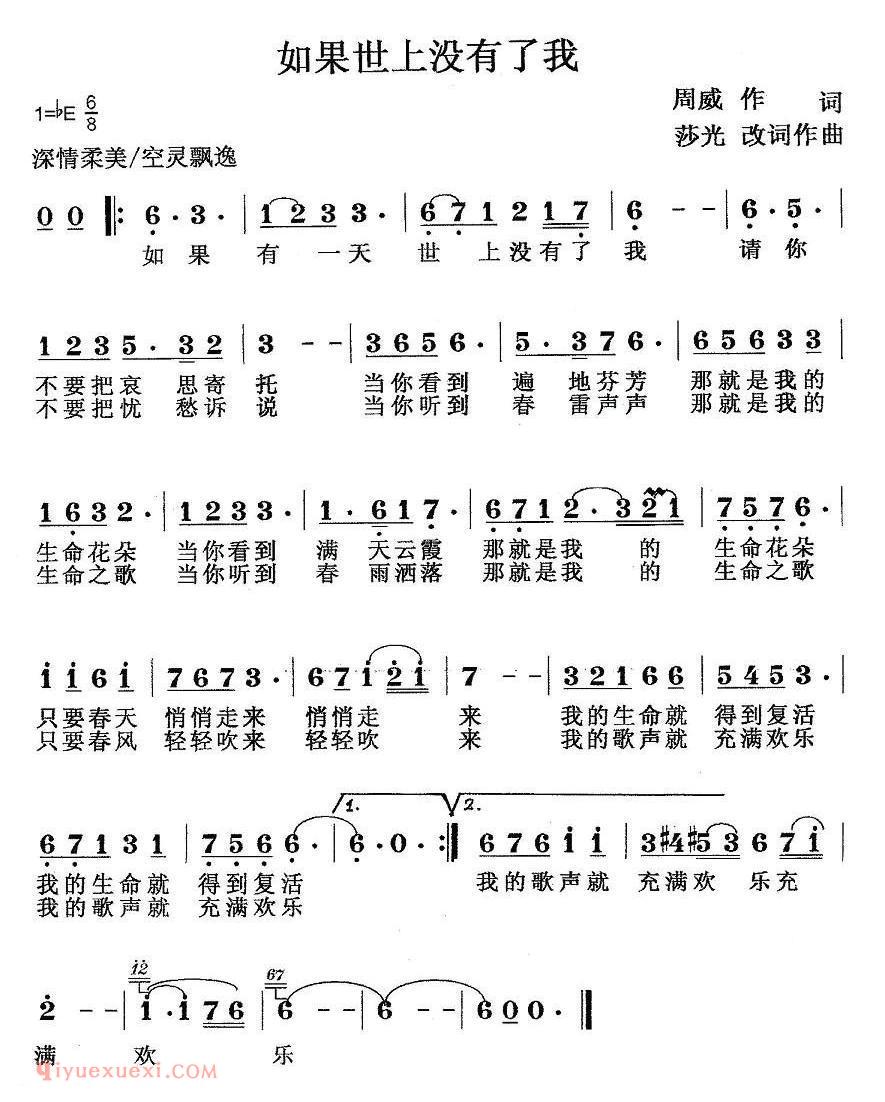 如果世上没有了我
1=♭E 6/8
周威 作 词
莎光 改词作曲
深情柔美/空灵飘逸
0 0 ‖: 6· 3· | 1 2 3 3· | 6 7 1 2 1 7 | 6 - - | 6· 5· |
如 果 有 一 天 世 上没有了 我 请 你
1 2 3 5· 3 2 | 3 - - | 3 6 5 6· | 5· 3 7 6· | 6 5 6 3 3 |
不要把哀 思寄 托 当你看到 遍 地芬芳 那就是我的
不要把忧 愁诉 说 当你听到 春 雷声声 那就是我的
1 6 3 2· | 1 2 3 3· | 1· 6 1 7· | 6 7 1 2· 3 2 1 | 7 5 7 6· |
生命花朵 当你看到 满 天云霞 那就是我 的 生命花朵
生命之歌 当你听到 春 雨洒落 那就是我 的 生命之歌
1 1 6 1 | 7 6 7 3· | 6 7 1 2 1 | 7 - - | 3 2 1 6 6 | 5 4 5 3· |
只要春天 悄悄走来 悄悄走 来 我的生命就 得到复活
只要春风 轻轻吹来 轻轻吹 来 我的歌声就 充满欢乐
1. 2.
6 7 1 3 1 | 7 5 6 6· | 6· 0· :‖ 6 7 6 1 1 | 3 #4 #5 3 6 7 1 |
我的生命就 得到复活 我的歌声就 充满欢 乐充
我的歌声就 充满欢乐
12 67
2 - - | 1· 1 7 6 | 6 - - | 6 - - | 6 0 0 ‖
满 欢 乐
qiyuexuexi.com